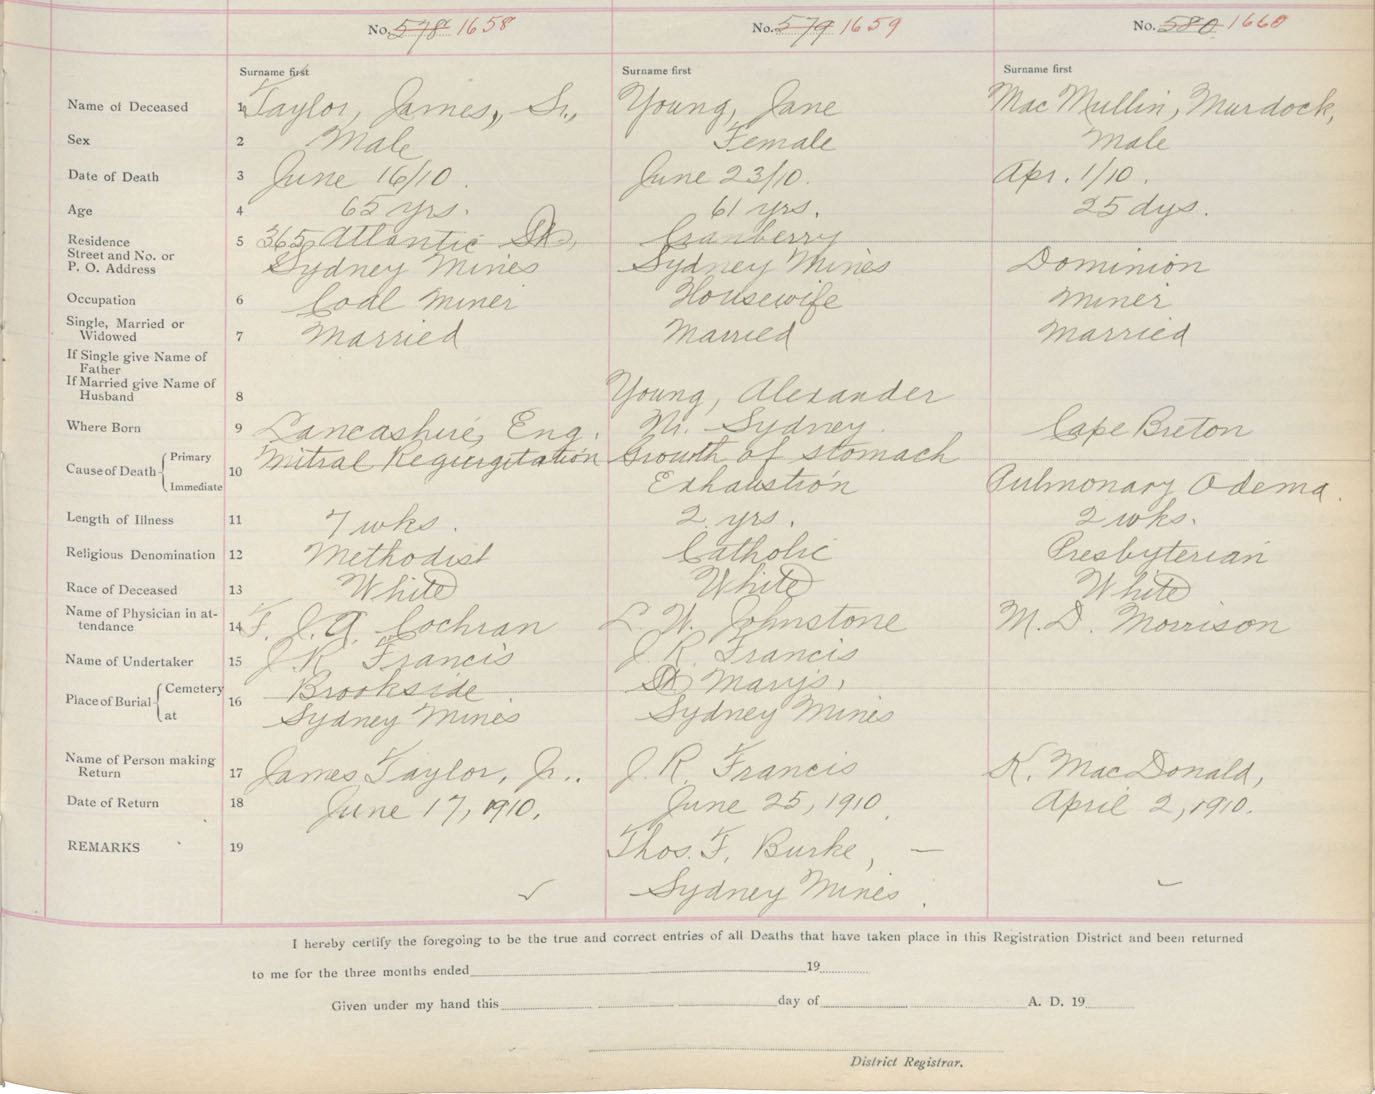 No. 578 1658 No. 579 1659 No. 580 1660
Surname first Surname first Surname first
Name of Deceased 1 Taylor, James, Sr., Young, Jane MacMullin, Murdock,
Sex 2 Male Female Male
Date of Death 3 June 16/10. June 23/10. Apr. 1/10.
Age 4 65 yrs. 61 yrs. 25 dys.
Residence 5 365 Atlantic St., Cranberry
Street and No. or
P. O. Address Sydney Mines Sydney Mines Dominion
Occupation 6 Coal Miner Housewife Miner
Single, Married or
Widowed 7 Married Married Married
If Single give Name of
Father
If Married give Name of
Husband 8 Young, Alexander
Where Born 9 Lancashire, Eng. Nr. Sydney. Cape Breton
Cause of Death Primary 10 Mitral Regurgitation Growth of stomach
Immediate Exhaustion Pulmonary Odema.
Length of Illness 11 7 wks. 2 yrs. 2 wks.
Religious Denomination 12 Methodist Catholic Presbyterian
Race of Deceased 13 White White White
Name of Physician in at-
tendance 14 F. J. A. Cochran L. W. Johnstone M. D. Morrison
Name of Undertaker 15 J. R. Francis J. R. Francis
Place of Burial Cemetery 16 Brookside St Mary's,
at Sydney Mines Sydney Mines
Name of Person making
Return 17 James Taylor, Jr.. J. R. Francis K. MacDonald,
Date of Return 18 June 17, 1910. June 25, 1910. April 2, 1910.
REMARKS 19 Thos. F. Burke, —
Sydney Mines.
I hereby certify the foregoing to be the true and correct entries of all Deaths that have taken place in this Registration District and been returned
to me for the three months ended 19
Given under my hand this day of A. D. 19
District Registrar.